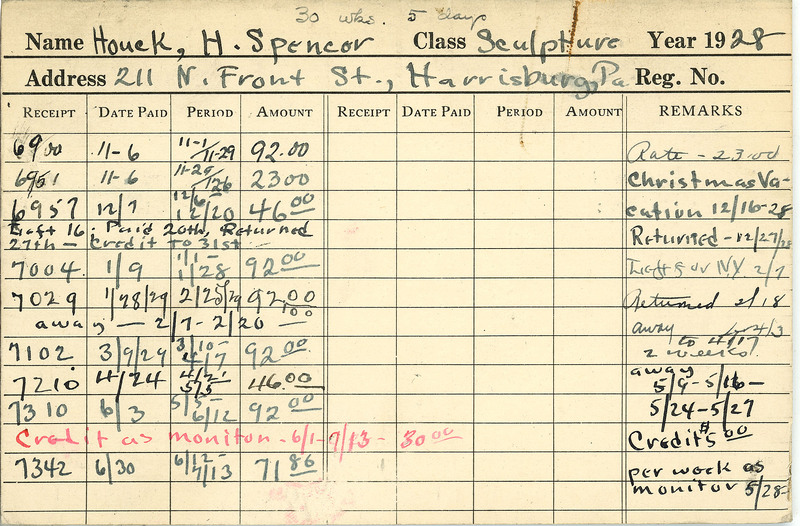 30 wks. 5 days
Name Houck, H. Spencer Class Sculpture Year 1928
Address 211 N. Front St., Harrisburg, Pa Reg. No.
RECEIPT DATE PAID PERIOD AMOUNT RECEIPT DATE PAID PERIOD AMOUNT REMARKS
6900 11-6 11-1 11-29 92.00 Rate - 23.00
6951 11-6 11-29 12/6 23 00 Christmas Va-
6957 12/7 12/6- 12/20 46 00 cation 12/16-28
Left 16; Paid 20th, Returned
27th - Credit to 31st - Returned - 12/27/28
7004 1/9 1/1- 1/28 92 00 Left for NY 2/7
7029 1/28/29 2/25/29 92.00 Returned 2/18
away - 2/7 - 2/20 - 00 away 4/3
7102 3/9/29 3/10- 4/7 92 00 to 4/17 2 weeks.
7210 4/24 4/21 5/5 46.00 away 5/9-5/16-
7310 6/3 5/5- 6/12 92 00 5/24-5/27
Credit as monitor - 6/1-7/13 - 30 00 Credit $5 00
7342 6/30 6/12- 7/13 71 86 per week as
monitor 5/28-